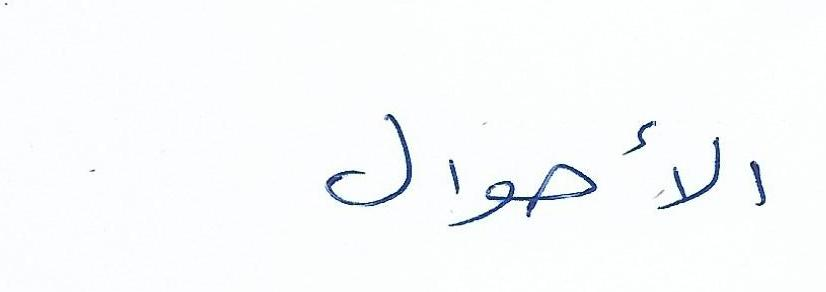 الأحوال